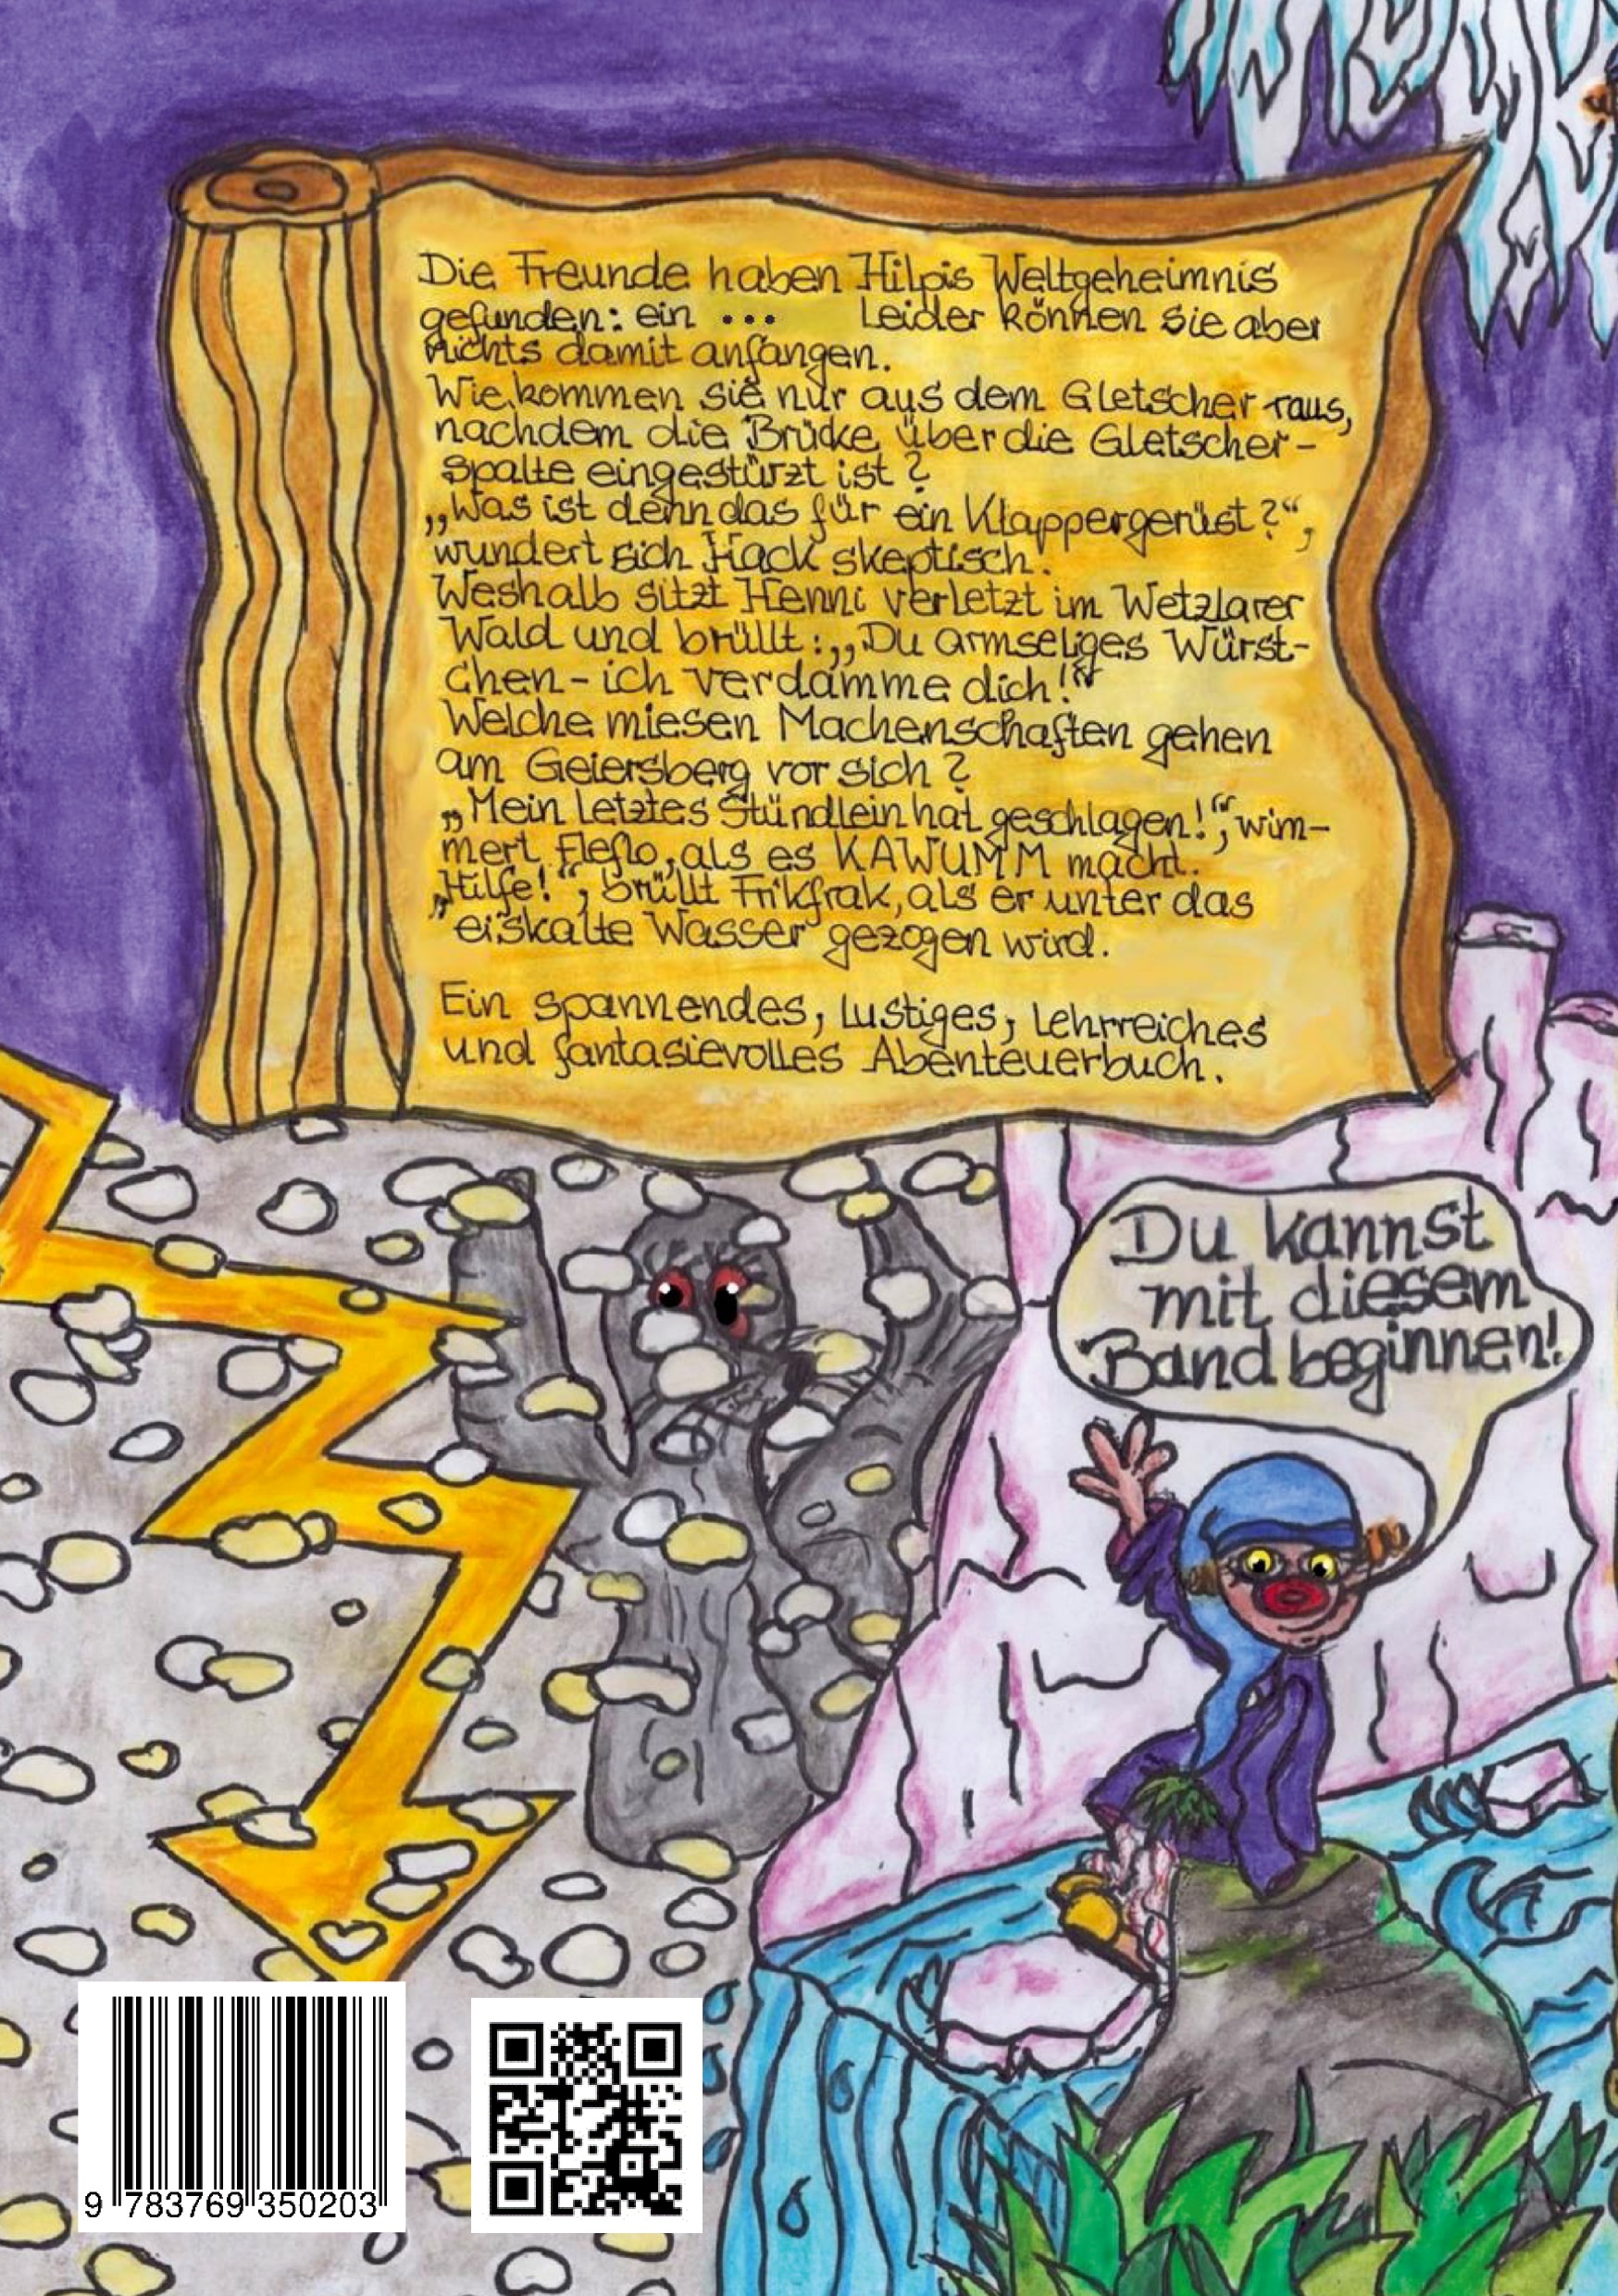 Die Freunde haben Hilpis Weltgeheimnis
gefunden: ein ... Leider können sie aber
nichts damit anfangen.
Wie kommen sie nur aus dem Gletscher raus,
nachdem die Brücke über die Gletscher-
spalte eingestürzt ist?
„Was ist denn das für ein Klappergerüst?“,
wundert sich Hack skeptisch.
Weshalb sitzt Henni verletzt im Wetzlarer
Wald und brüllt: „Du armseliges Würst-
chen - ich verdamme dich!“
Welche miesen Machenschaften gehen
am Geiersberg vor sich?
„Mein letztes Stündlein hat geschlagen!“, wim-
mert Fleflo, als es KAWUMM macht.
„Hilfe!“, brüllt Frikfrak, als er unter das
eiskalte Wasser gezogen wird.
Ein spannendes, lustiges, lehrreiches
und fantasievolles Abenteuerbuch.
Du kannst
mit diesem
Band beginnen!
9 783769 350203